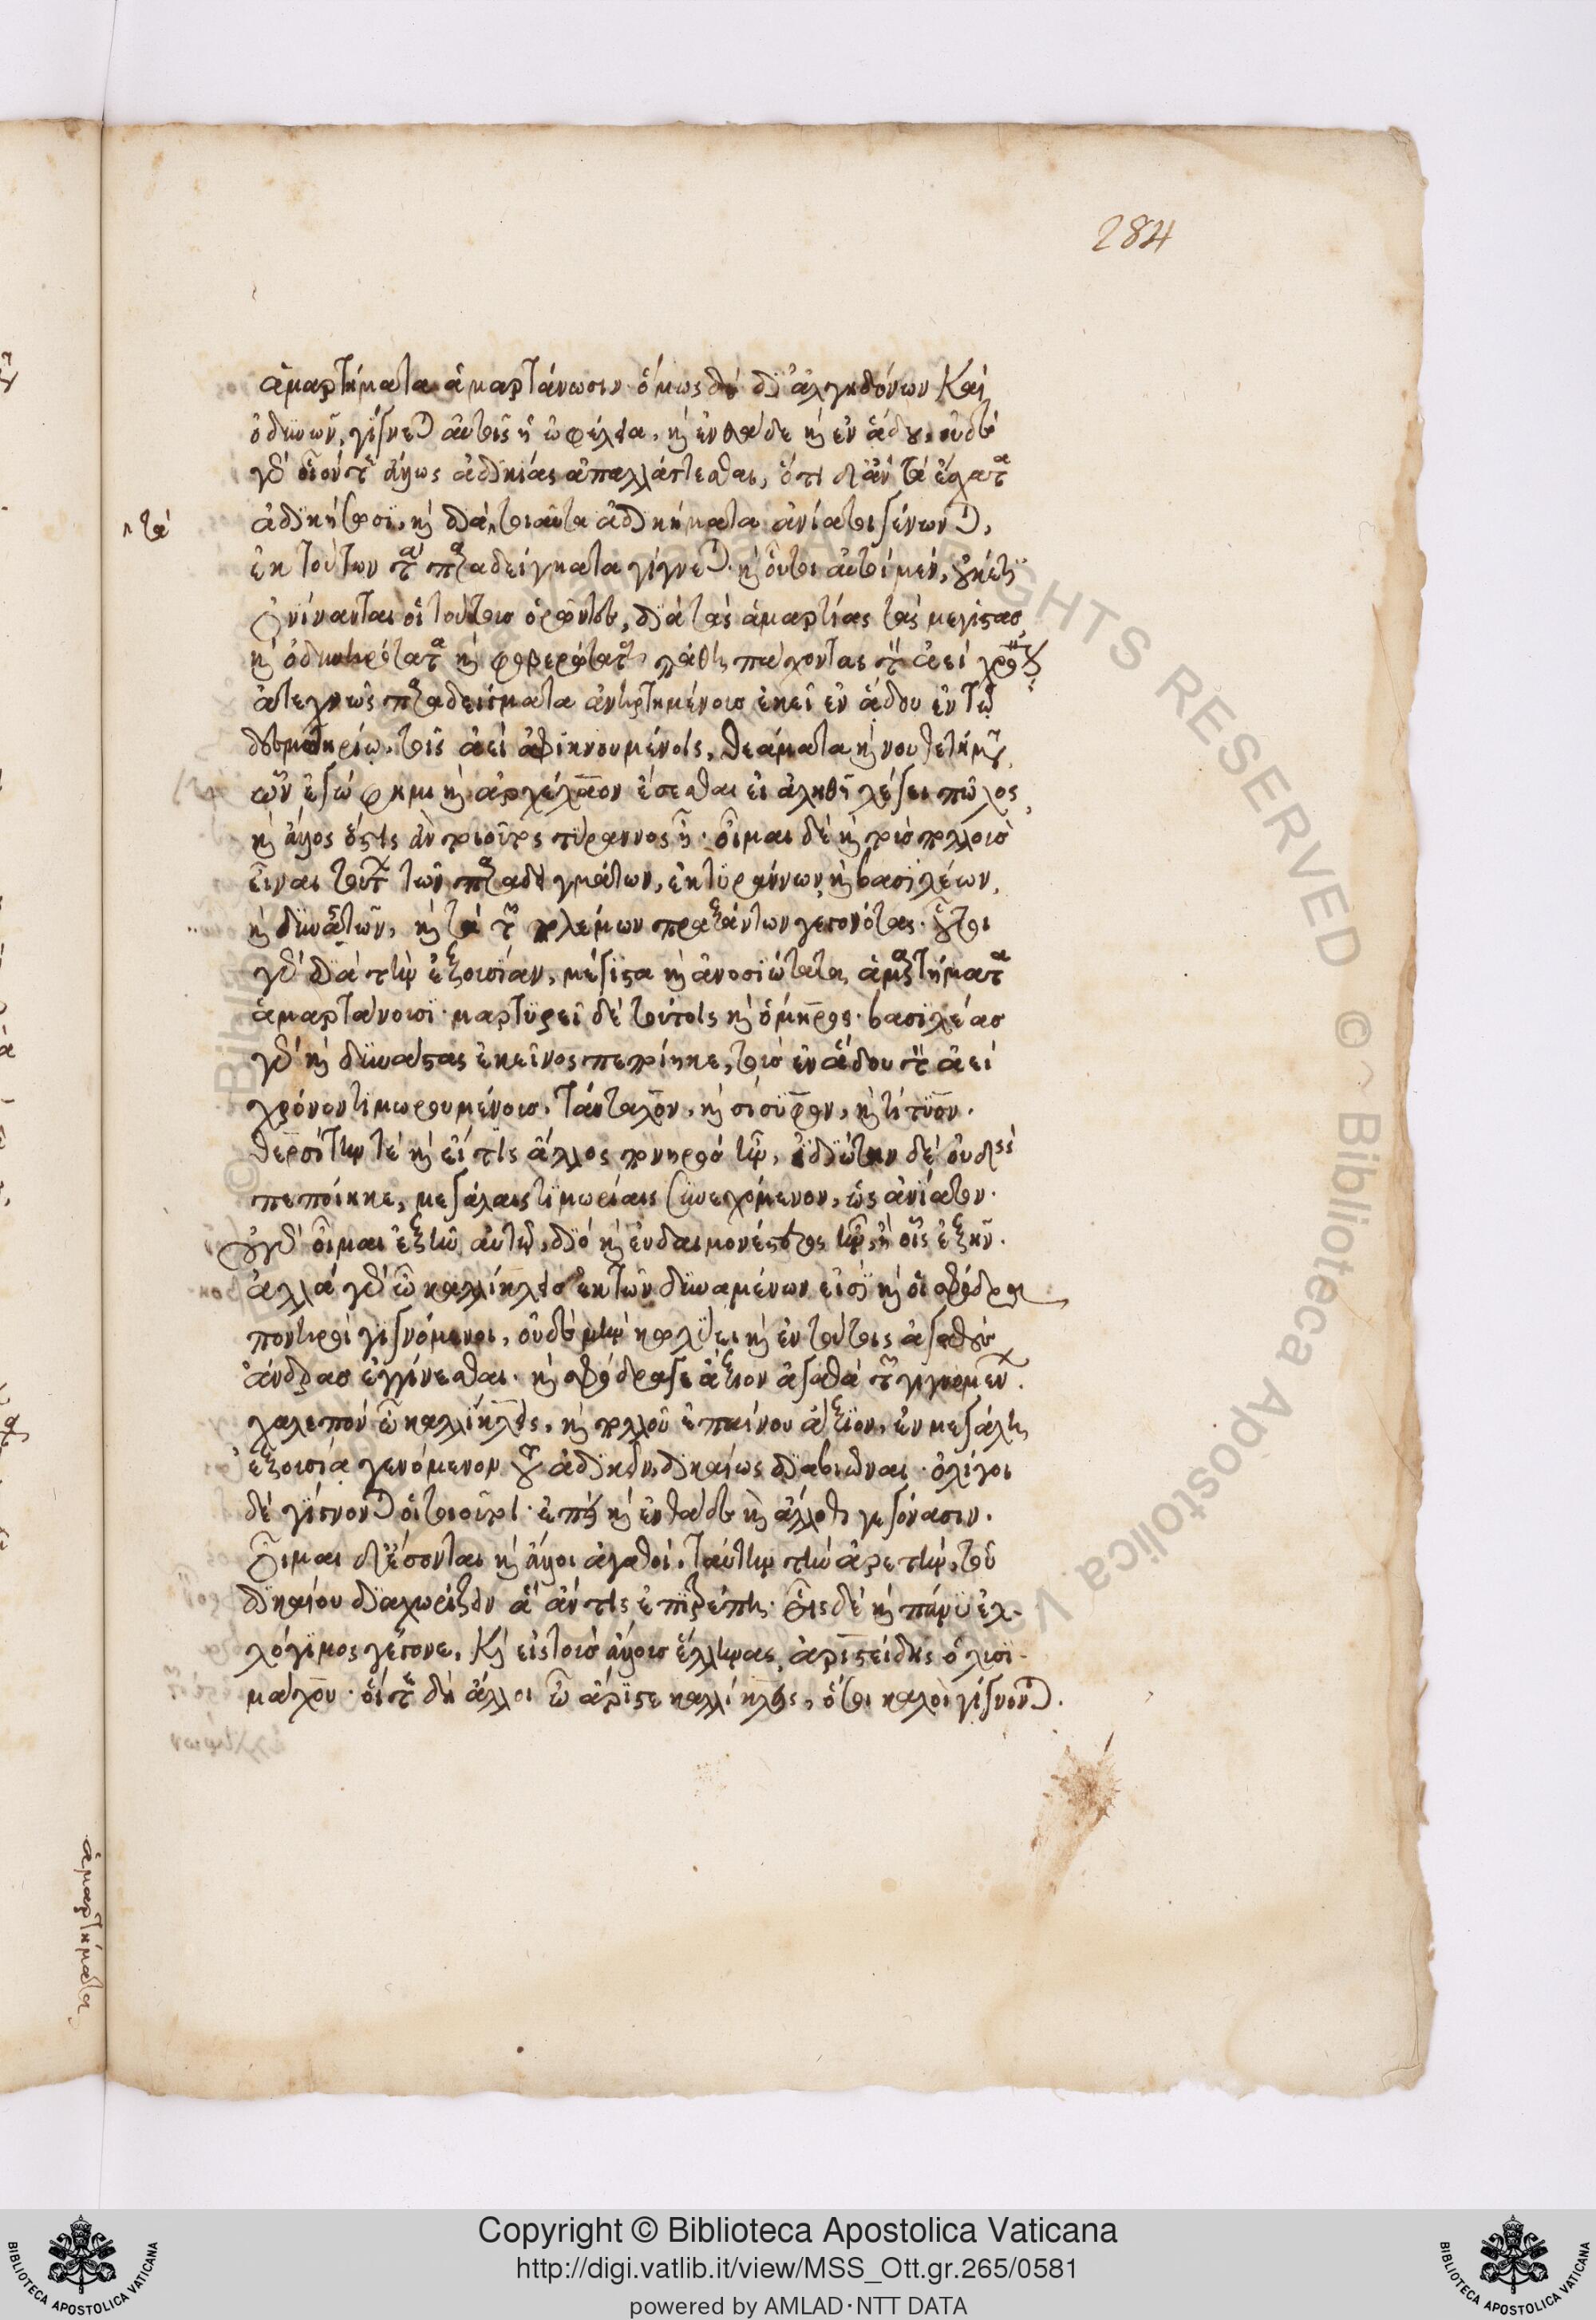 284
ἁμαρτήματα ἁμαρτάνωσιν· ὅμως δὲ δι' ἀλγηδόνων Καὶ
ὀδυνῶν, γίγνεται αὐτοῖς ἡ ὠφέλεια, καὶ ἐνθάδε καὶ ἐν ἅδου. οὐδὲ
γὰρ οἷόν τε ἄλλως ἀδικίας ἀπαλλάττεσθαι, ὅτι δ' ἂν τὰ ἔσχατα
ἀδικήσωσι, καὶ διὰ τοιαῦτα ἀδικήματα ἀνίατοι γένωνται,
τὰ
ἐκ τούτων τὰ παραδείγματα γίγνεται· καὶ οὗτοι αὐτοὶ μὲν, οὐκέτι
ὀνίνανται οἱ τούτους ὁρῶντες, διὰ τὰς ἁμαρτίας τὰς μεγίστας
καὶ ὀδυνηρότατα καὶ φοβερώτατα πάθη πάσχοντας τὸν ἀεὶ χρόνον
ἀτεχνῶς παραδείγματα ἀνηρτημένους ἐκεῖ ἐν ἅδου ἐν τῷ
δεσμωτηρίῳ, τοῖς ἀεὶ ἀφικνουμένοις, θεάματα καὶ νουθετήματα,
ὧν ἐγώ φημι καὶ ἀρχέλαον ἔσεσθαι εἰ ἀληθῆ λέγει πῶλος,
καὶ ἄλλος ὅστις ἂν τοιοῦτος τύραννος ᾖ· οἶμαι δὲ καὶ τοὺς πολλοὺς
εἶναι τούτων τῶν παραδειγμάτων, ἐκ τυράννων καὶ βασιλέων,
καὶ δυναστῶν, καὶ τὰ τῶν πολέμων πραξάντων γεγονότας· οὗτοι
γὰρ διὰ τὴν ἐξουσίαν, μέγιστα καὶ ἀνοσιώτατα ἁμαρτήματα
ἁμαρτάνουσι· μαρτυρεῖ δὲ τούτοις καὶ ὅμηρος· βασιλέας
γὰρ καὶ δυνάστας ἐκεῖνος πεποίηκε, τοὺς ἐν ἅδου τὸν ἀεὶ
χρόνον τιμωρουμένους. Τάνταλον, καὶ σίσυφον, καὶ τιτυόν.
θερσίτην τὲ καὶ εἴ τις ἄλλος πονηρὸς ἦν, ἰδιώτην δὲ οὐδεὶς
πεποίηκε, μεγάλαις τιμωρίαις συνεχόμενον, ὡς ἀνίατον·
οὐ γὰρ οἶμαι ἐξῆν αὐτῷ, διὸ καὶ εὐδαιμονέστερος ἦν, ἢ οἷς ἐξῆν.
ἀλλὰ γὰρ ὦ καλλίκλεις ἐκ τῶν δυναμένων εἰσὶ καὶ οἱ σφόδρα
πονηροὶ γιγνόμενοι, οὐδὲν μὴν κωλύει καὶ ἐν τούτοις ἀγαθοὺς
ἄνδρας ἐγγίνεσθαι· καὶ σφόδρα γε ἄξιον ἄγασθαι τῶν γιγνομένων.
χαλεπὸν ὦ καλλίκλεις, καὶ πολλοῦ ἐπαίνου ἄξιον, ἐν μεγάλῃ
ἐξουσίᾳ γενόμενον τοῦ ἀδικεῖν, δικαίως διαβιῶναι· ὀλίγοι
δὲ γίγνονται οἱ τοιοῦτοι· ἐπεὶ καὶ ἐνθάδε καὶ ἄλλοθι γεγόνασιν.
Οἶμαι δ' ἔσονται καὶ ἄλλοι ἀγαθοί, ταύτην τὴν ἀρετὴν, τοῦ
δικαίου διαχωρίζειν ἃ ἄν τις ἐπιτρέπῃ. εἷς δὲ καὶ πάνυ ἐλ-
λόγιμος γέγονε, Καὶ εἰς τοὺς ἄλλους ἕλληνας, ἀριστείδης ὁ λυσι-
μάχου· οἵ τε δὴ ἄλλοι ὦ ἄριστε καλλίκλεις, ὅτοι καλοὶ γίγνονται.
ἁμαρτήματα
Copyright © Biblioteca Apostolica Vaticana
http://digi.vatlib.it/view/MSS_Ott.gr.265/0581
powered by AMLAD·NTT DATA
BIBLIOTECA APOSTOLICA VATICANA
BIBLIOTECA APOSTOLICA VATICANA